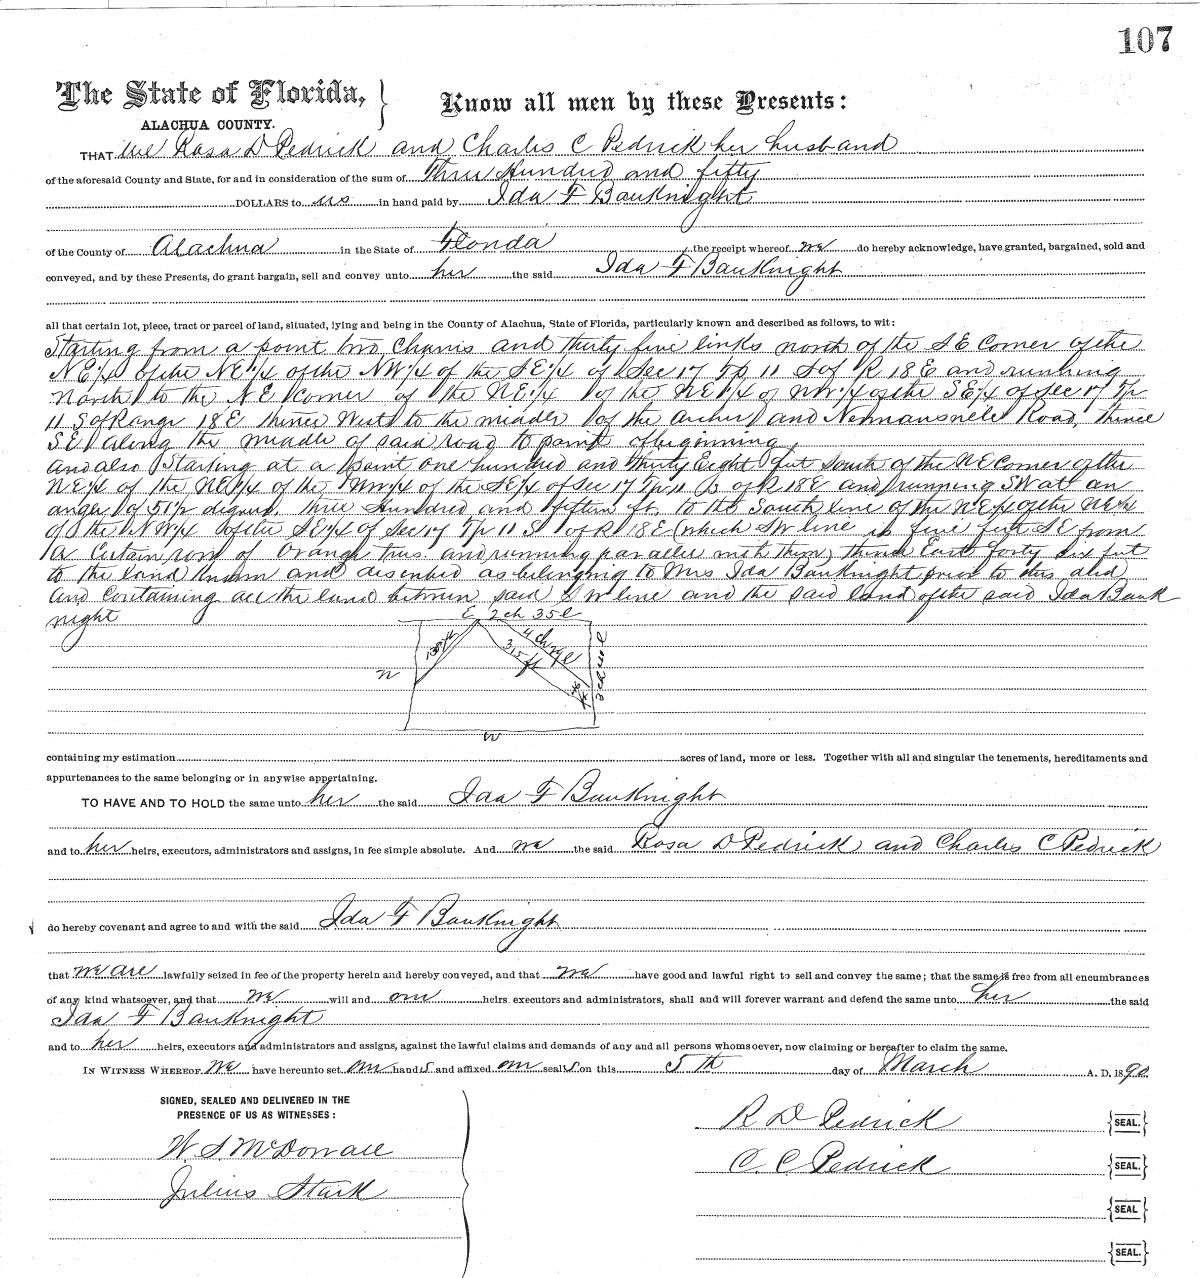 107
The State of Florida, } Know all men by these Presents:
ALACHUA COUNTY.
THAT We Rosa D Pedrick and Charles C Pedrick her husband
of the aforesaid County and State, for and in consideration of the sum of Three Hundred and fifty
DOLLARS to us in hand paid by Ida F BauKnight
of the County of Alachua in the State of Florida the receipt whereof we do hereby acknowledge, have granted, bargained, sold and
conveyed, and by these Presents, do grant bargain, sell and convey unto her the said Ida F BauKnight
all that certain lot, piece, tract or parcel of land, situated, lying and being in the County of Alachua, State of Florida, particularly known and described as follows, to wit:
Starting from a point two Chains and thirty five links north of the SE Corner of the
NE¼ of the NE¼ of the NW¼ of the SE¼ of Sec 17 Tp 11 S of R 18 E and running
North to the NE Corner of the NE¼ of the NE¼ of NW¼ of the SE¼ of Sec 17 Tp
11 S of Range 18 E thence West to the middle of the Archer and Road, thence
SE along the middle of said road to point of beginning,
and also Starting at a point one hundred and thirty Eight feet South of the NE Corner of the
NE¼ of the NE¼ of the NW¼ of the SE¼ of Sec 17 Tp 11 S of R 18 E and running SW at an
angle of 51½ degrees, three Hundred and fifteen ft. to the South line of the NE¼ of the NE¼
of the NW¼ of the SE¼ of Sec 17 Tp 11 S of R 18 E (which SW line is five feet SE from
a Certain row of Orange trees and running parallel with them) thence East forty six feet
to the land known and described as belonging to Mrs Ida BauKnight prior to this deed
and Containing all the land between said SW line and the said land of the said Ida Bauk
night
E 2 ch 35 l
138 ft
315 ft
46 ft
N
W
containing my estimation acres of land, more or less. Together with all and singular the tenements, hereditaments and
appurtenances to the same belonging or in anywise appertaining.
TO HAVE AND TO HOLD the same unto her the said Ida F BauKnight
and to her heirs, executors, administrators and assigns, in fee simple absolute. And we the said Rosa D Pedrick and Charles C Pedrick
do hereby covenant and agree to and with the said Ida F BauKnight
that we are lawfully seized in fee of the property herein and hereby conveyed, and that we have good and lawful right to sell and convey the same; that the same is free from all encumbrances
of any kind whatsoever, and that we will and our heirs executors and administrators, shall and will forever warrant and defend the same unto her the said
Ida F BauKnight
and to her heirs, executors and administrators and assigns, against the lawful claims and demands of any and all persons whomsoever, now claiming or hereafter to claim the same.
IN WITNESS WHEREOF we have hereunto set our hands and affixed our seals on this 5th day of March A. D. 1890
SIGNED, SEALED AND DELIVERED IN THE
PRESENCE OF US AS WITNESSES:
R D Pedrick {SEAL.}
W. S. McDowall
C. C Pedrick {SEAL.}
Julius Stark
{SEAL}
{SEAL.}